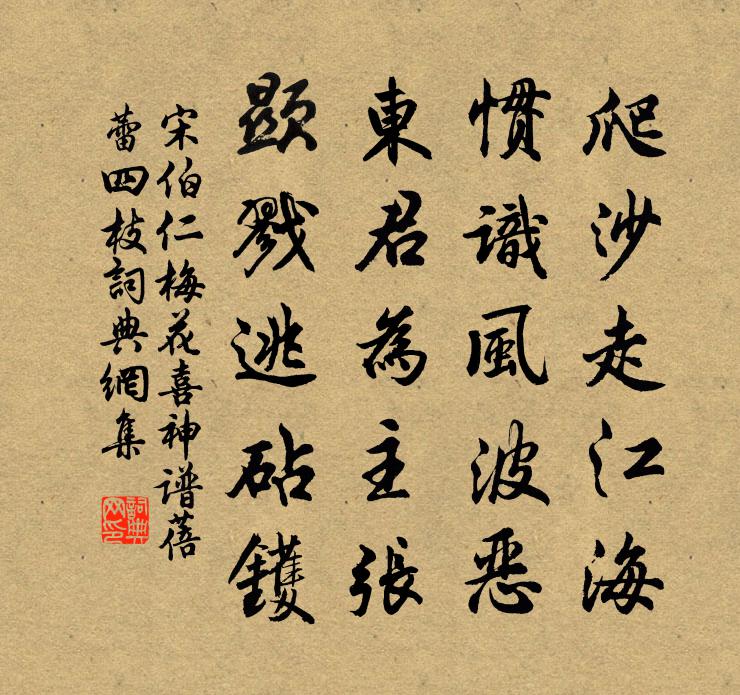 爬沙走江海
慣識風波惡
東君為主張
顯戮逃砧鑊
宋伯仁梅花喜神谱蓓
蕾四枝詞典網集
詞典网印